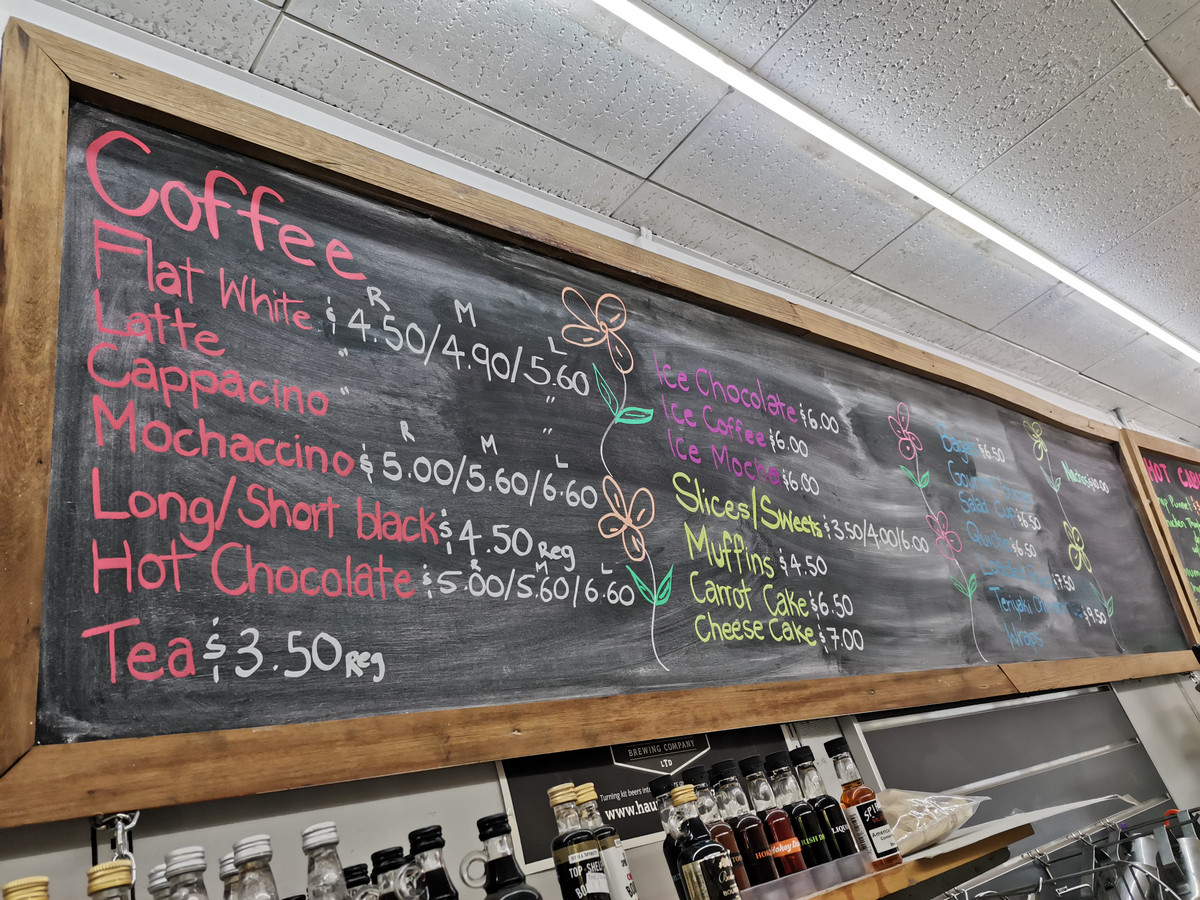 Coffee
R M L
Flat White $4.50/4.90/5.60
Latte " "
Cappacino " "
R M L
Mochaccino $5.00/5.60/6.60
Long/Short black $4.50 Reg
R M L
Hot Chocolate $5.00/5.60/6.60
Tea $3.50 Reg
Ice Chocolate $6.00
Ice Coffee $6.00
Ice Mocha $6.00
Slices/Sweets $3.50/4.00/6.00
Muffins $4.50
Carrot Cake $6.50
Cheese Cake $7.00
$6.50
Salad Cup $6.50
$6.50
$7.50
Teriyaki $9.50
Wraps
Nachos $10.00
HOT
BREWING COMPANY
LTD
Turning kit beers
www.hau
TOP SHELF